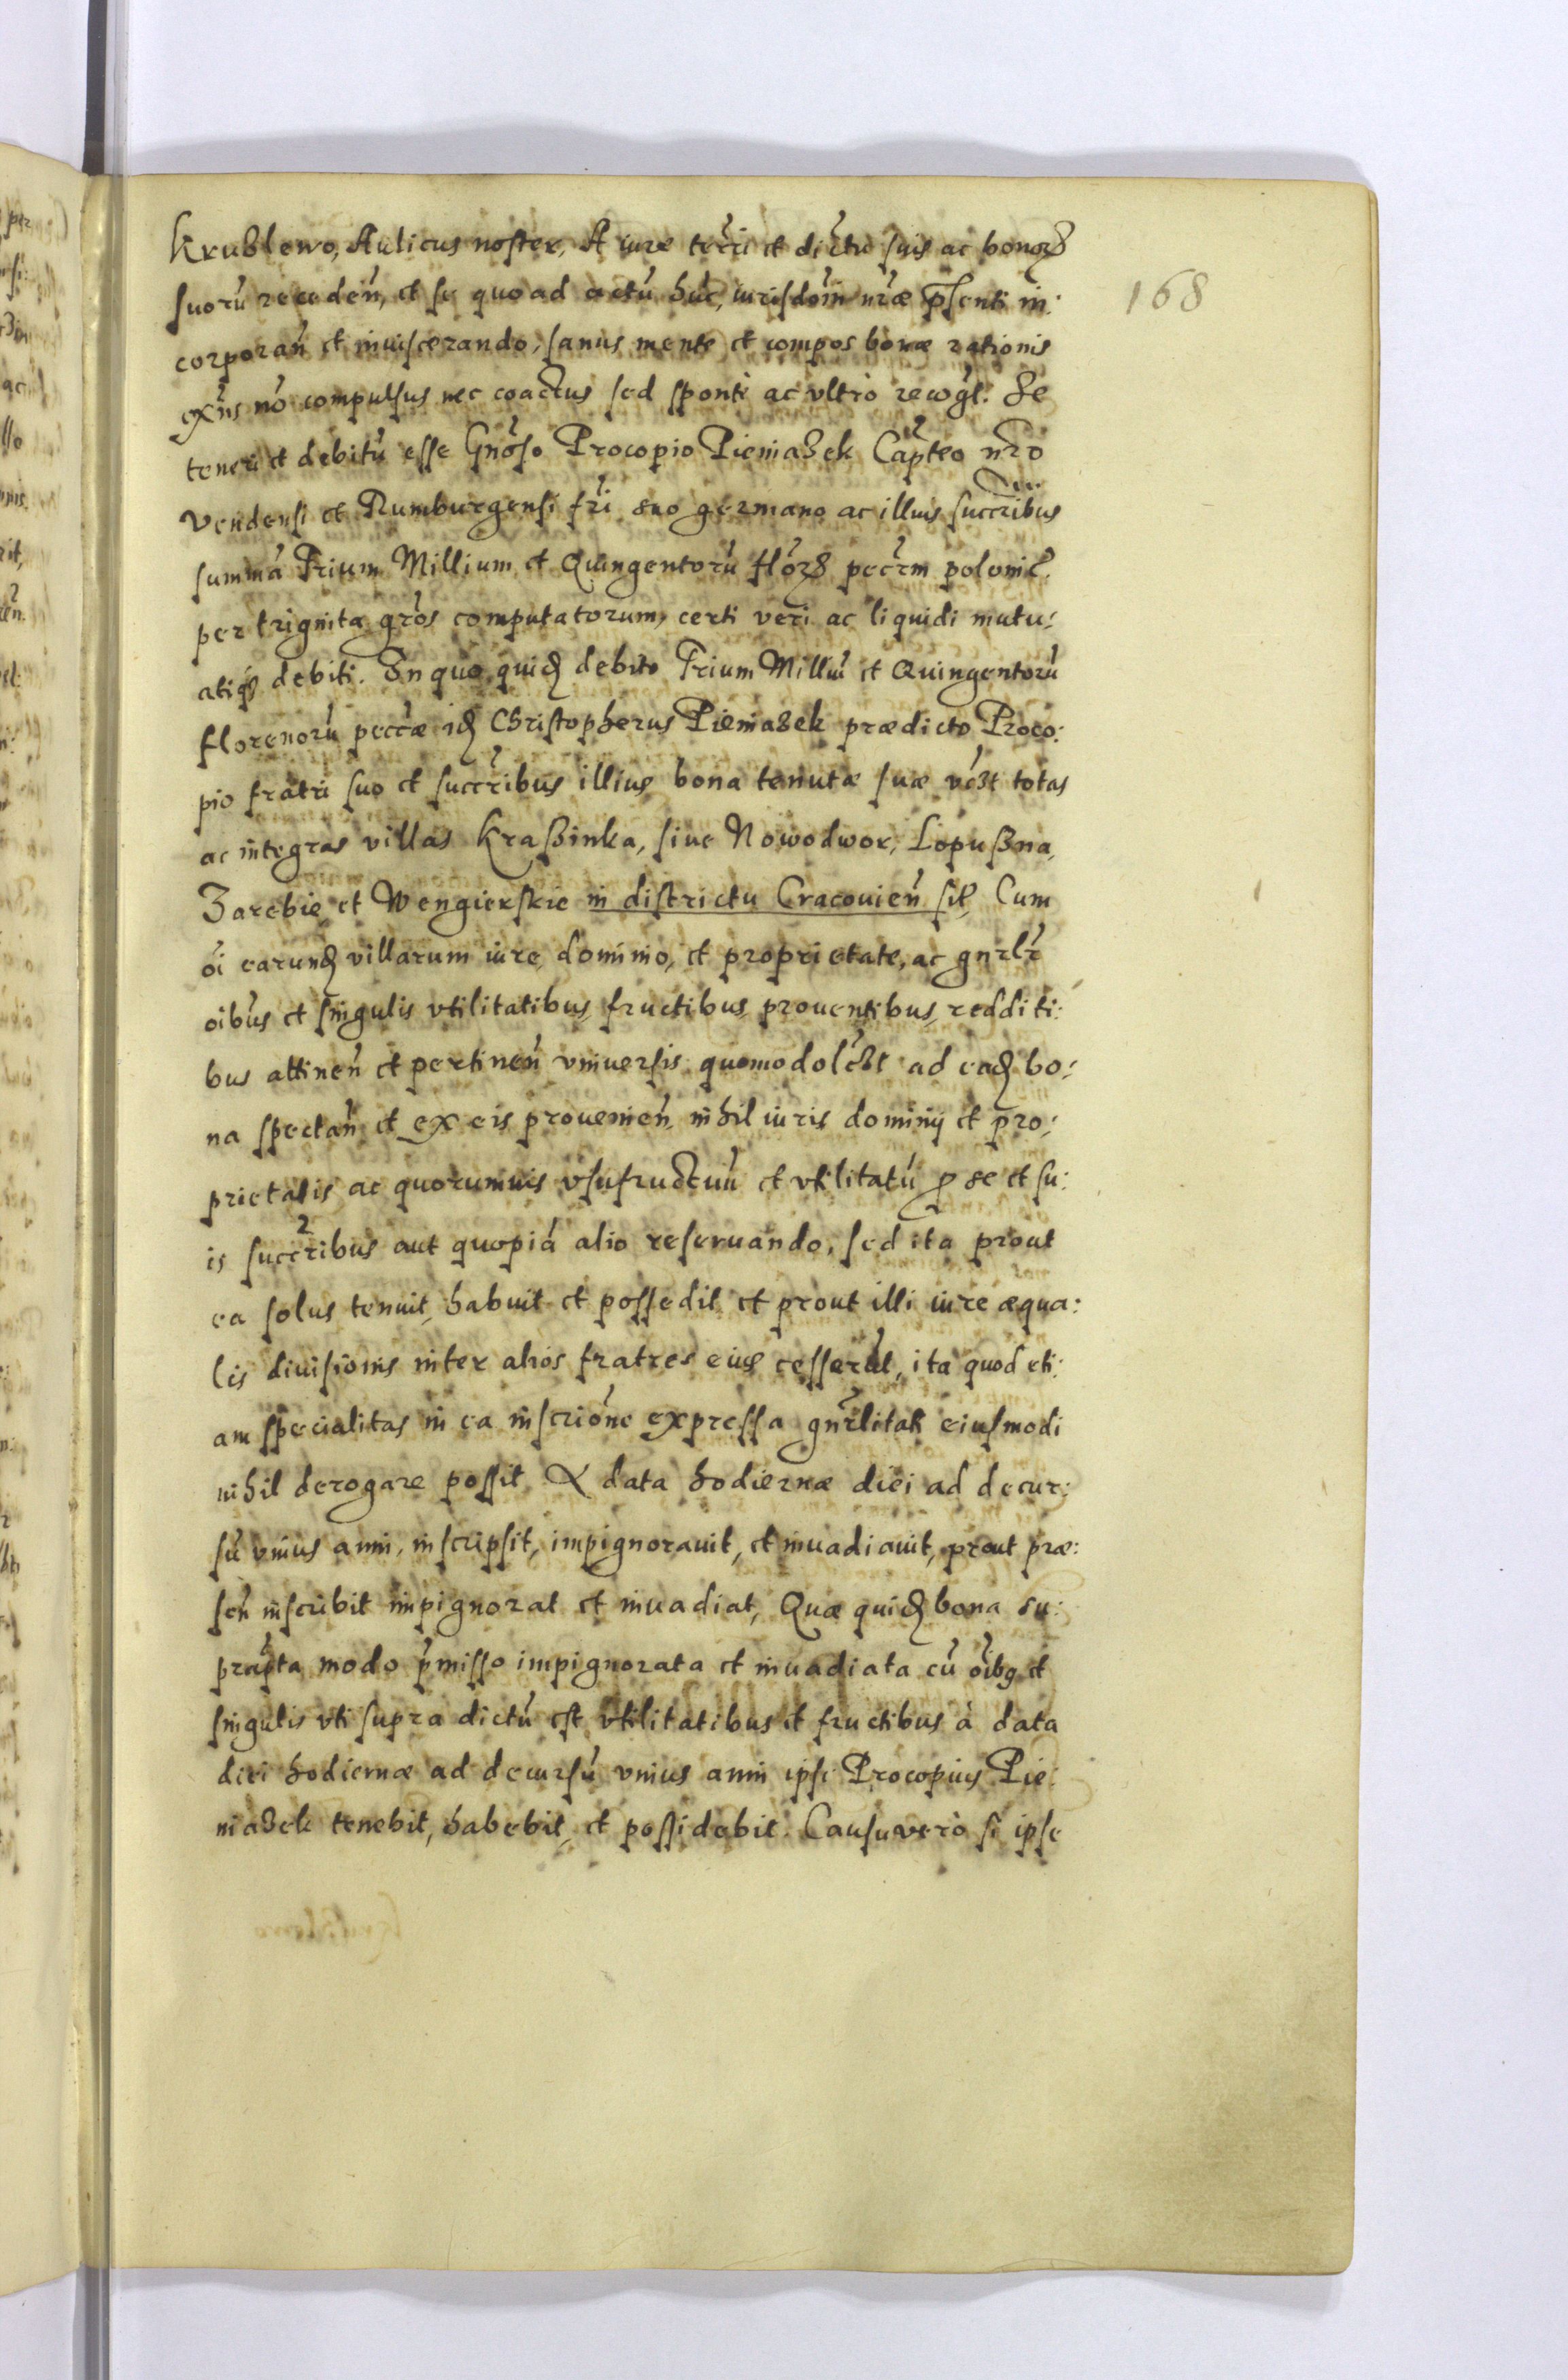 Kruslewo, Aulicus noster, A iure terrĩ et dictu suis ac bonorũ
suorũ receden̄, et se quoad actũ hũc, iurisdom̃ nr̃æ pr̃senti in:
corporan̄ et inuiscerando, sanus mente et compos bonæ rationis
exñs nõ compulsus nec coactus sed sponte ac vltro recogt: Se
teneri et debitũ esse Gnõso Procopio Pieniazek Capteo nr̃o
168
Vendensi et Rumburgensi fr̃i suo germano ac illius succr̃ibus
summã Trium Millium et Quingentorũ flõrũ pecr̃m polonic̃.
per triginta grõs computatorum, certi veri ac liquidi mutu:
atiq̃ debiti. In quo quid̃ debito Trium Milliũ et Quingentorũ
florenorũ pecc̃æ id̃ Christopherus Pieniazek prædicto Proco:
pio fratri suo et succr̃ibus illius bona tenutæ suæ vc̃zt totas
ac integras villas Kraßinka, siue Nowodwor, Lopußna,
Zarebie et Wengierskie in districtu Cracouien̄ sit̃, Cum
õi earund̃ villarum iure, dominio, et proprietate, ac gnr̃lr̃
oĩbus et singulis vtilitatibus, fructibus prouentibus, redditi:
bus attinen̄ et pertinen̄ vniuersis quomodolc̃zt ad ead̃ bo:
na spectan̄ et ex eis prouenien̄, nihil iuris dominij et pro:
prietatis ac quorumuis vsufructuũ et vtilitatũ p se et su:
is succr̃ibus aut quopiã alio reseruando, sed ita prout
ea solus tenuit, habuit et possedit et prout illi iure æqua:
lis diuisionis inter alios fratres eius cesserũt, ita quod eti:
am specialitas in ea inscriõne expressa gnr̃litati eiusmodi
nihil derogare possit A data hodiernæ diei ad decur:
sũ vnius anni, inscripsit, impignorauit, et inuadiauit, prout præ:
sen̄ inscribit impignorat et inuadiat, Quæ quid̃ bona su:
prap̃ta modo p̃misso impignorata et inuadiata cũ oĩbq et
singulis vti supra dictũ est vtilitatibus et fructibus à data
diei hodiernæ ad decursũ vnius anni ipse Procopius Pie:
niazek tenebit, habebit, et possidebit. Causu verò si ipse